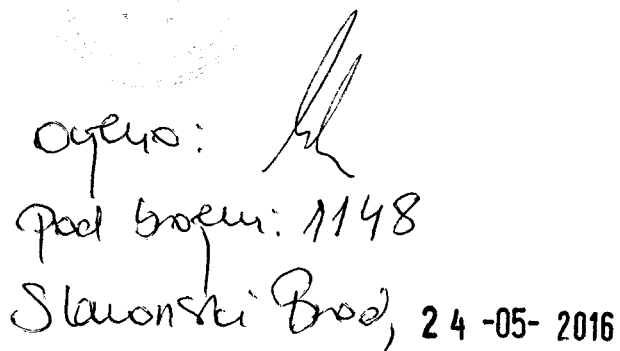 Ocjena:
pod brojem: 1148
Slavonski Brod, 24-05-2016